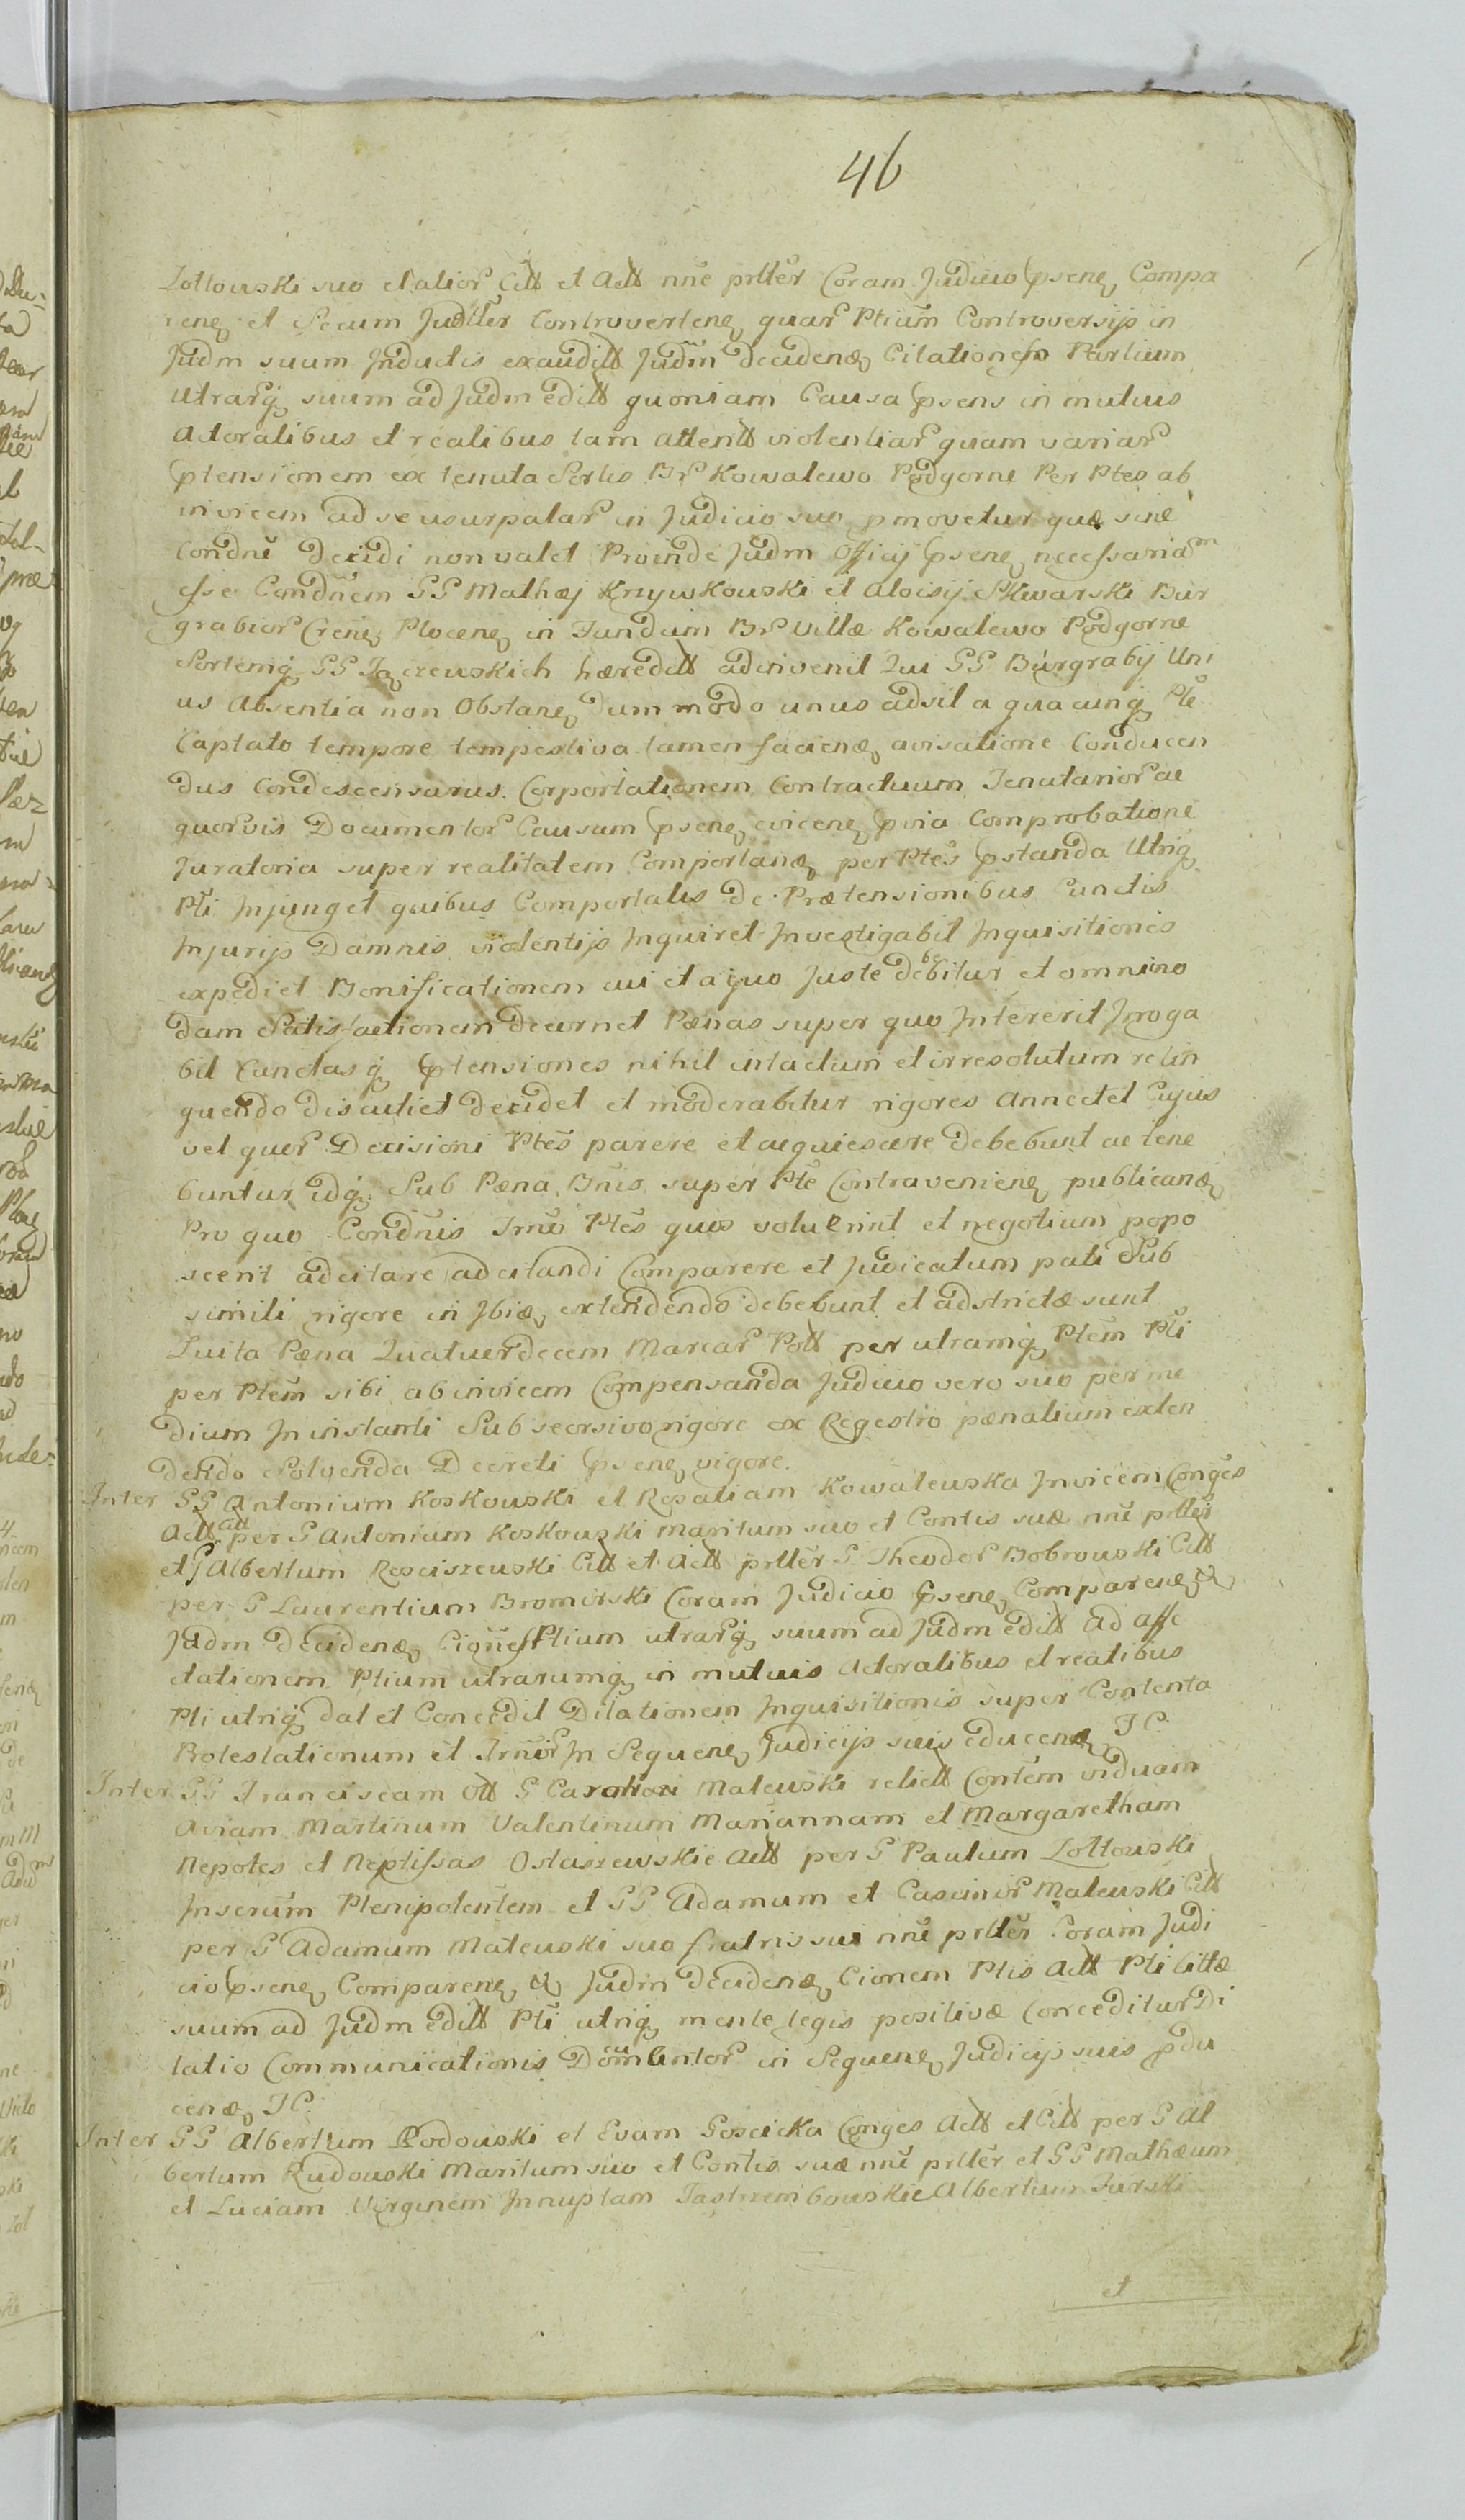 46
Zottowski suo et alior Citt et Actt nne prtter Coram Judicio psenę Compa
renę et Secum Judltter Controvertenę quar Ptium Controversijs in
Judm suum Inductis exauditt Judm Decidenę Citationem Partium
utrarq suum ad Judm editt quoniam Causa psens in mutuis
Actoralibus et realibus tam attentt violentiar quam variar
ptensionem ex tenuta Sortis Br Kowalewo Podgorne Per Ptes ab
invicem ad se usurpatar in Judicio suo pmovetur quæ sine
Condne Decidi non valet Proinde Judm Officij psenę necessariam
esse Condnem GG Mathæj Krzywkowski et Aloisij Skwarski Bur
grabior Crenę Plocenę in Fundum Br Villæ Kowalewo Podgorne
Sortemq GG hæreditt adinvenit Qui GG Burgrabij Uni
us Absentia non Obstanę dummodo unus adsit a quacunq Pte
Captato tempore tempestiva tamen facienę avisatione Conducen
dus Condescensurus. Corportationem Contractuum Tenutarior ac
quorvis Documentor Causam psenę evicenę pvia Comprobatione
Juratoria super realitatem Comportanę per Ptes pstanda Utriq
Pti Injunget quibus Comportatis De Prætensionibus Cunctis
Injurijs Damnis violentijs Inquiret Investigabit Inquisitiones
expediet Bonificationem cui et a quo Juste debebitur et omnimo
dam Satisfactionem decernet Pœnas super quo Intererit Irroga
bit Cunctasq ptensiones nihil intactum et irresolutum relin
quendo discutiet Decidet et moderabitur rigores Annectet Cujus
vel quor Decisioni Ptes parere et acquiescere debebunt ac tene
buntur idq Sub Pœna Bnis super Pte Contravenienę publicanę
Pro quo Condnis Trno Ptes quos voluerint et negotium popo
scerit adcitare adcitandi Comparere et Judicatum pati Sub
simili rigore in Ibię extendendo debebunt et adstrictæ sunt
Luita Pœna Quatuordecem Marcar Poll per utramq Ptem Pti
per Ptem sibi ab invicem Compensanda Judicio vero suo per me
dium In instanti Sub seorsivo rigore ex Regestro pœnalium exten
dendo Solvenda Decreti psenę vigore.
Inter GG Antonium Koskowski et Rosaliam Kowalewska Invicem Conges
Actt citt per G Antonium Koskowski Maritum suo et Contis suæ nne prtter
et G Albertum Rosciszewski Citt et Actt prtter G Theodor Bobrowski Citt
per G Laurentium Bromirski Coram Judicio psenę Comparenę &
Judm Decidenę Cignes Ptium utrarq suum ad Judm editt ad affe
ctationem Ptium utrarumq in mutuis Actoralibus et realibus
Pti utriq dat et Concedit Dilationem Inquisitionis super Contenta
Protestationum et Trnor In Sequenę Judicijs suis educenę IC
Inter GG Franciscam Ott G Malewski relictt Contem viduam
Aviam Martinum Valentinum Mariannam et Margaretham
Nepotes et Neptissas Ostaszewskie Actt per G Paulum Zottowski
Inserum Plenipotentem et GG Adamum et Casimir Malewski Citt
per G Adamum Malewski suo fratris sui nne prtter Coram Judi
cio psenę Comparenę & Judm Decidenę Cionem Ptis Actt Pti Cittæ
suum ad Judm editt Pti utriq mente legis positivæ Conceditur Di
latio Communicationis in Sequenę Judicijs suis pdu
cenę IC
Inter GG Albertum Rodowski et Evam Goscicka Conges Actt et Citt per G Al
bertum Rudowski Maritum suo et Contis suæ nne prtter et GG Mathæum
et Luciam Virginem Innuptam Jastrzembowskie Albertum Turski
et